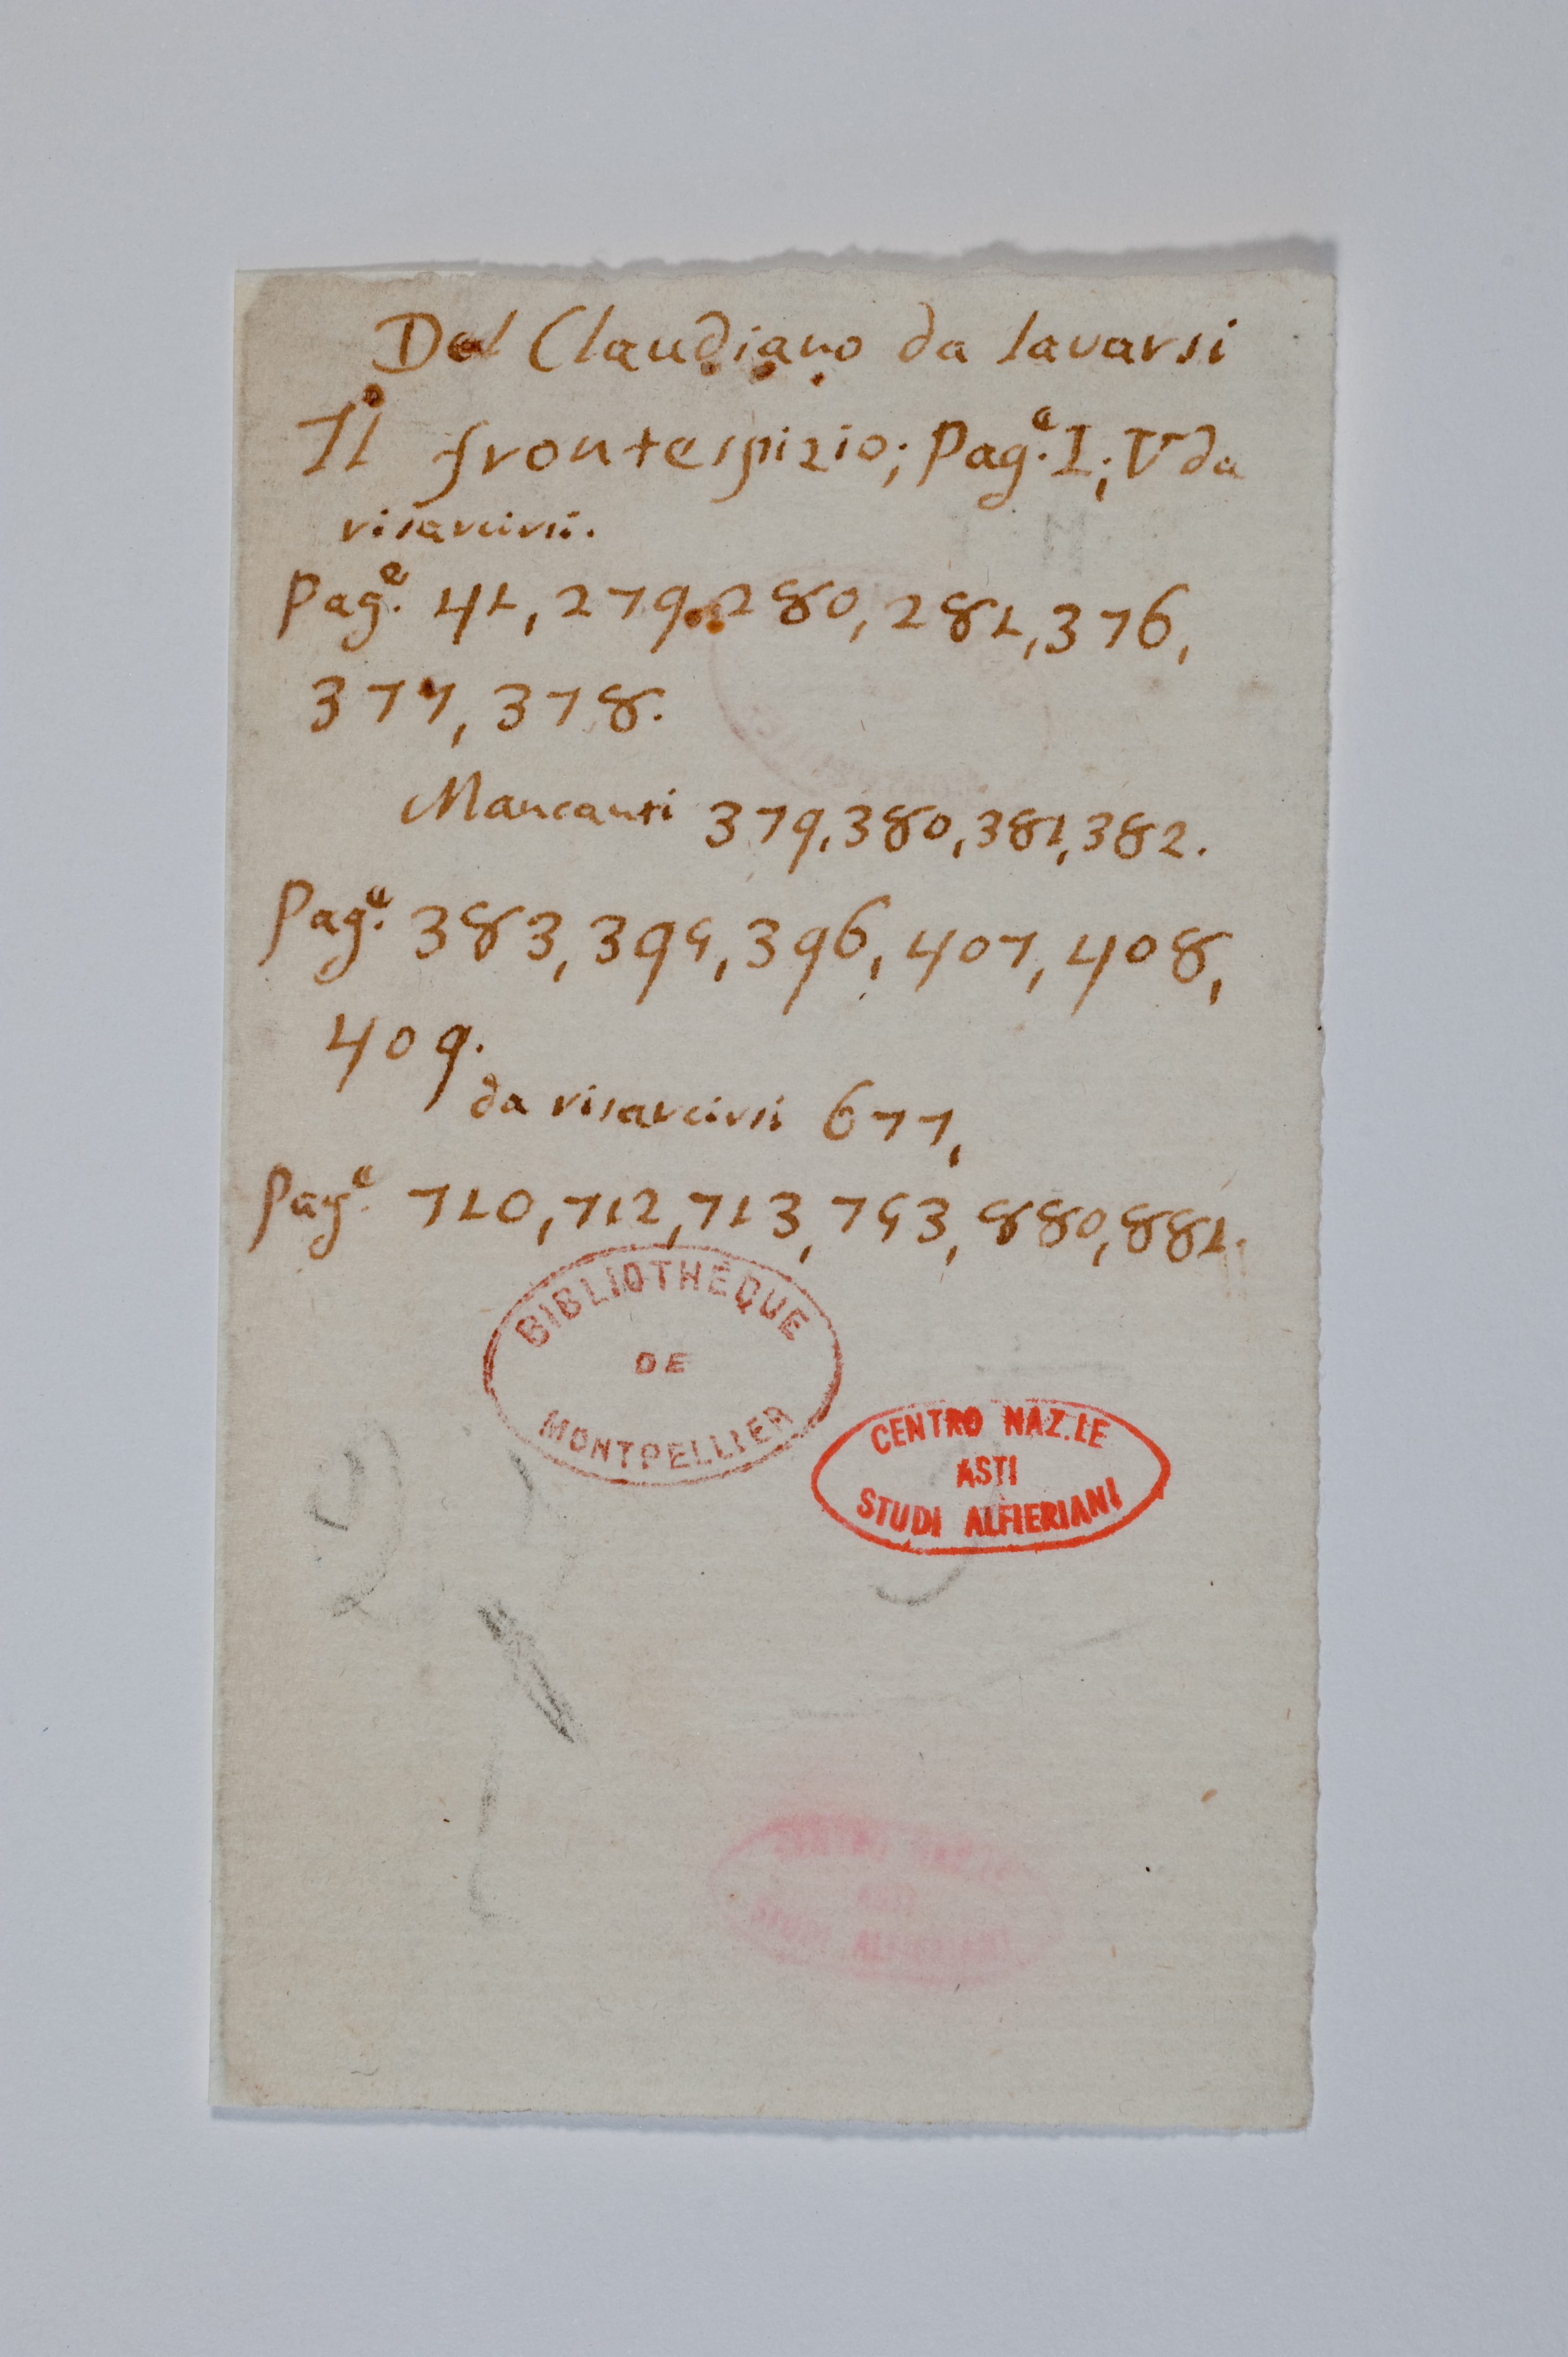 Del Claudiano da lavarsi
Il frontespizio; Pag.e I; V da
risarcirsi.
Pag.e 41, 279, 280, 281, 376,
377, 378.
Mancanti 379, 380, 381, 382.
Pag.e 383, 395, 396, 407, 408,
409.
da risarcirsi 677,
Pag.e 710, 712, 713, 753, 880, 881.
BIBLIOTHÈQUE
DE
MONTPELLIER
CENTRO NAZ.LE
ASTI
STUDI ALFIERIANI